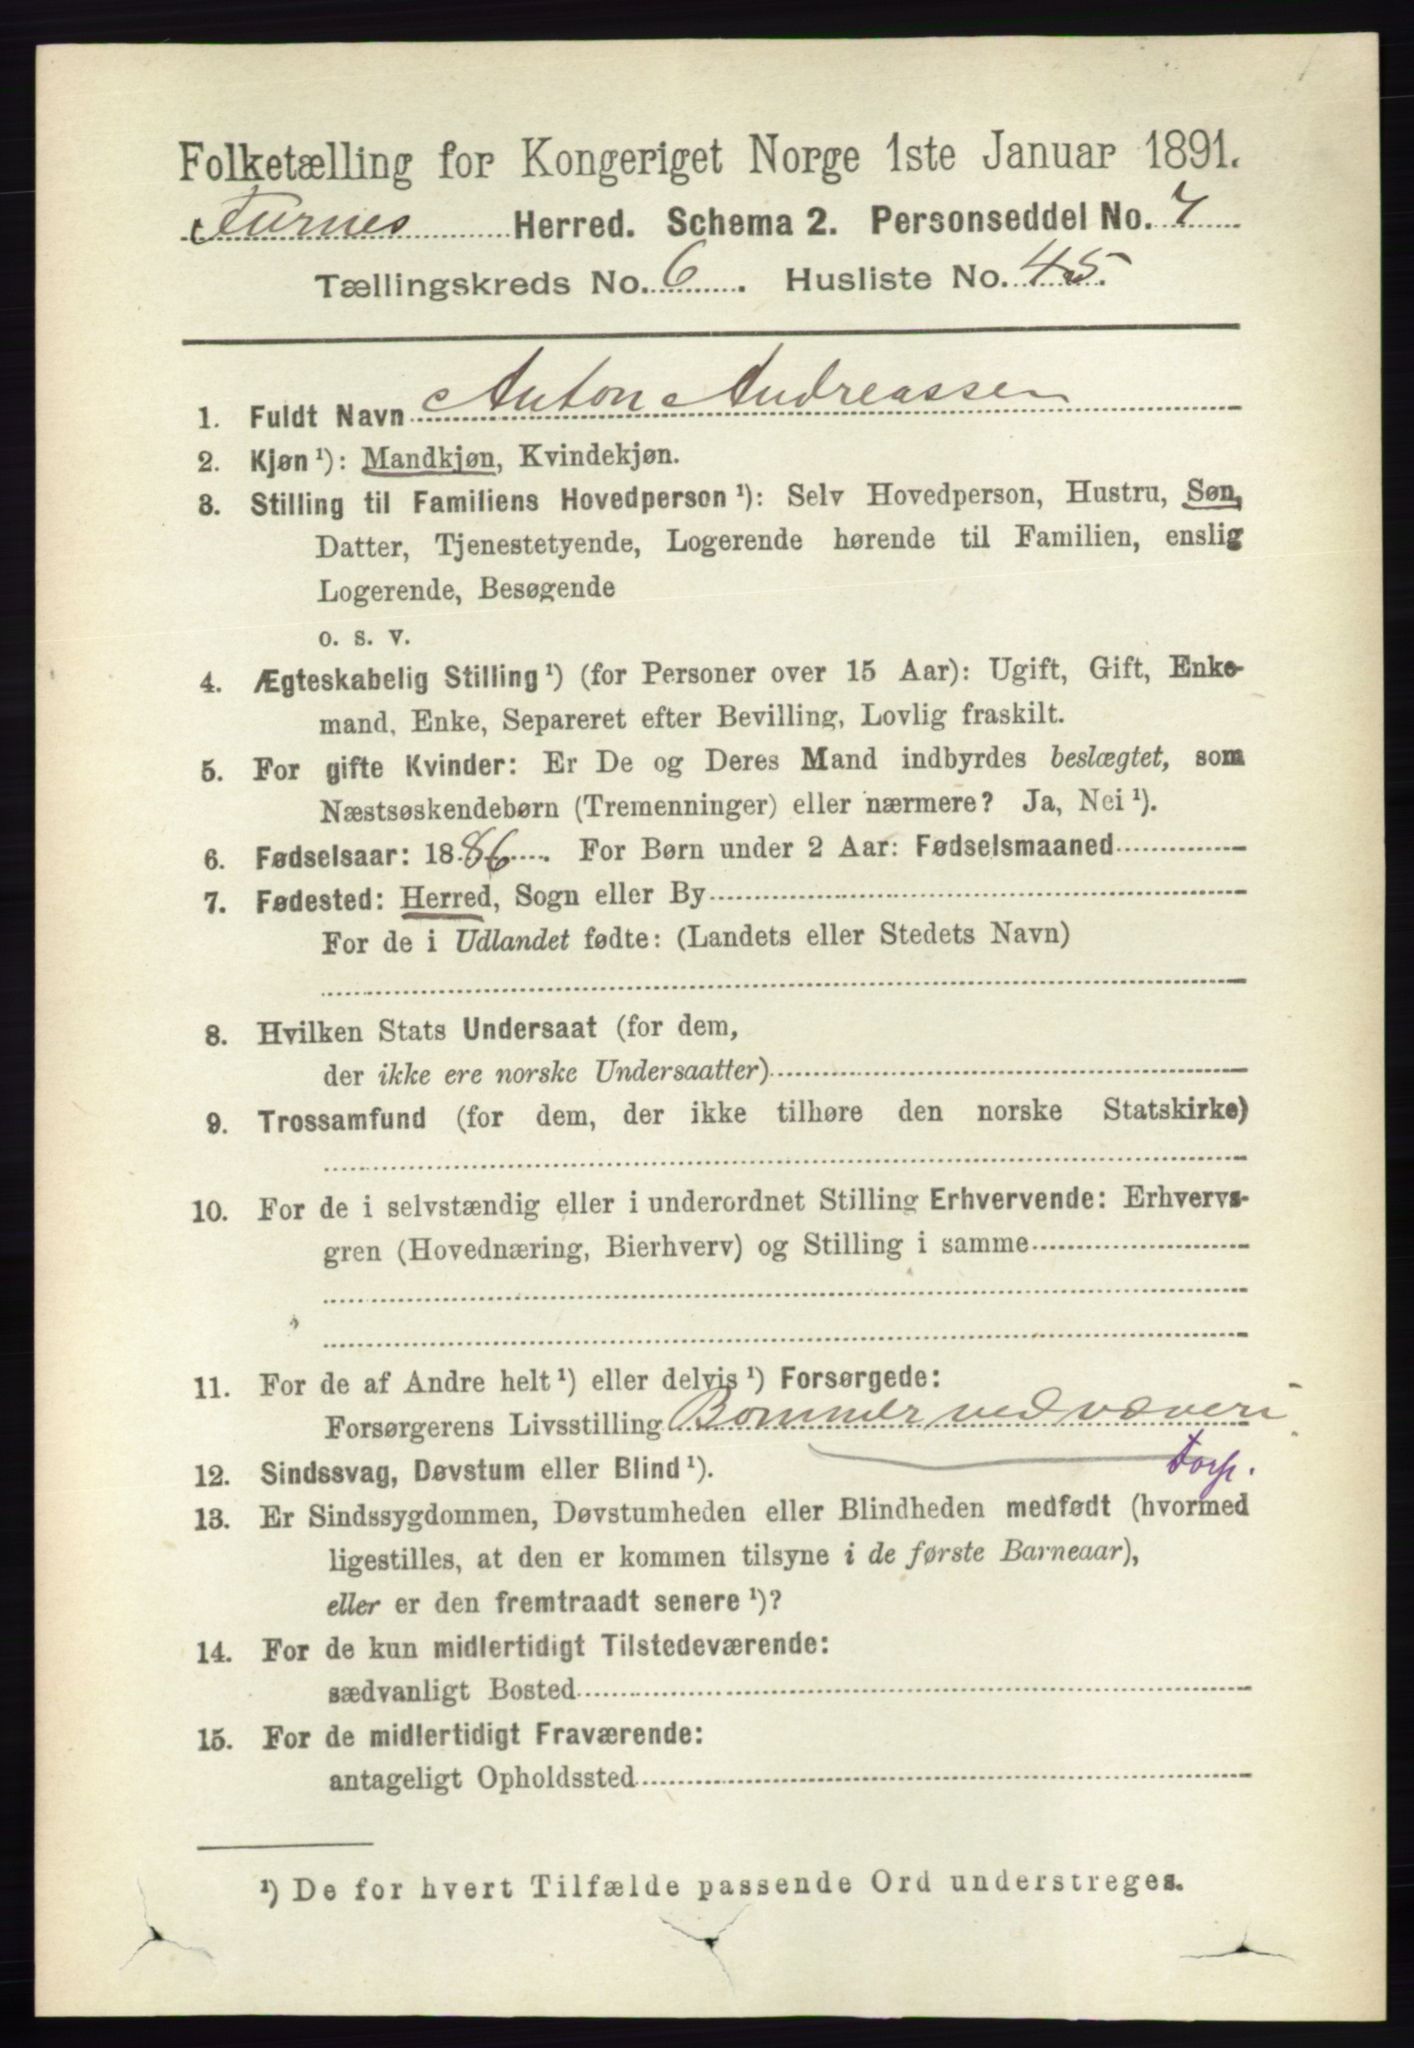 Folketælling for Kongeriget Norge 1ste Januar 1891.
Furnes Herred. Schema 2. Personseddel No. 7
Tællingskreds No. 6. Husliste No. 45.
1. Fuldt Navn Anton Andreassen
2. Kjøn ¹): Mandkjøn, Kvindekjøn.
3. Stilling til Familiens Hovedperson ¹): Selv Hovedperson, Hustru, Søn,
Datter, Tjenestetyende, Logerende hørende til Familien, enslig
Logerende, Besøgende
o. s. v.
4. Ægteskabelig Stilling ¹) (for Personer over 15 Aar): Ugift, Gift, Enke-
mand, Enke, Separeret efter Bevilling, Lovlig fraskilt.
5. For gifte Kvinder: Er De og Deres Mand indbyrdes beslægtet, som
Næstsøskendebørn (Tremenninger) eller nærmere? Ja, Nei ¹).
6. Fødselsaar: 1886. For Børn under 2 Aar: Fødselsmaaned
7. Fødested: Herred, Sogn eller By
For de i Udlandet fødte: (Landets eller Stedets Navn)
8. Hvilken Stats Undersaat (for dem,
der ikke ere norske Undersaatter)
9. Trossamfund (for dem, der ikke tilhøre den norske Statskirke)
10. For de i selvstændig eller i underordnet Stilling Erhvervende: Erhvervs-
gren (Hovednæring, Bierhverv) og Stilling i samme
11. For de af Andre helt ¹) eller delvis ¹) Forsørgede:
Forsørgerens Livsstilling Bommer ved væveri
12. Sindssvag, Døvstum eller Blind ¹).
13. Er Sindssygdommen, Døvstumheden eller Blindheden medfødt (hvormed
ligestilles, at den er kommen tilsyne i de første Barneaar),
eller er den fremtraadt senere ¹)?
14. For de kun midlertidigt Tilstedeværende:
sædvanligt Bosted
15. For de midlertidigt Fraværende:
antageligt Opholdssted
¹) De for hvert Tilfælde passende Ord understreges.